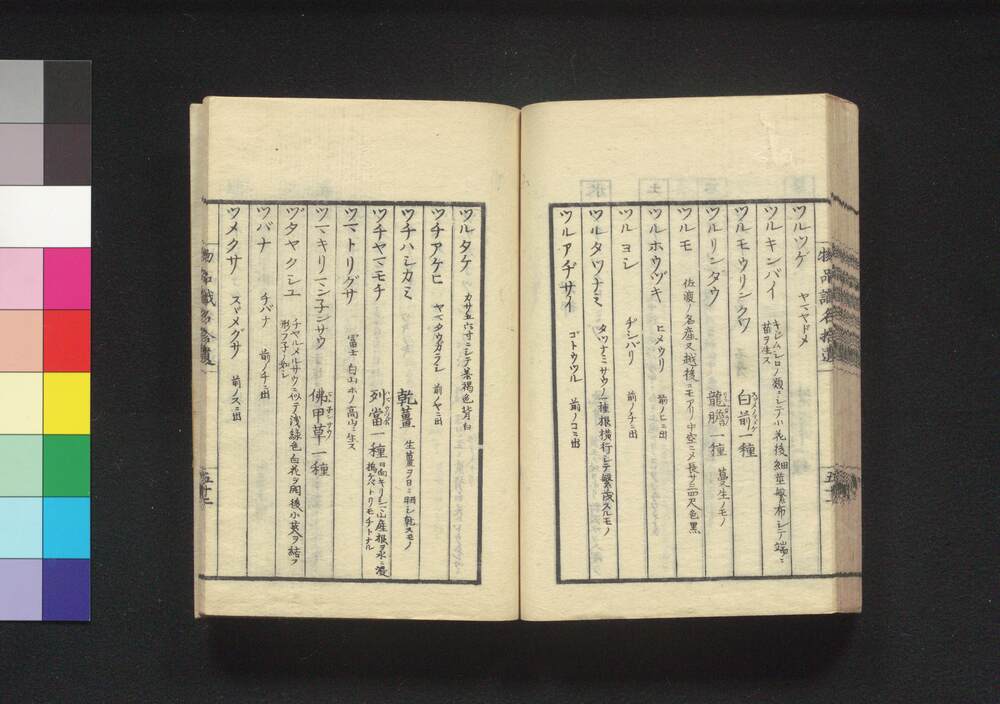 物品識名拾遺
ツルツゲ ヤマヤドメ
ツルキンバイ キジムシロノ類ニシテ小花後細蔓繁布シテ端ニ
苗ヲ生ス
ツルモウリンクワ 白前一種
ツルリンダウ 龍膽一種 蔓生ノモノ
ツルモ 佐渡ノ名産又越後ニモアリ中空ニメ長サ三四尺色黒
ツルホウヅキ ヒメウリ 前ノヒニ出
ツルヨシ ヂシバリ 前ノチニ出
ツルタツナミ タツナミサウノ一種根横行シテ繁茂スルモノ
ツルアヂサイ ゴトウヅル 前ノコニ出
ツルタケ カサ五六寸ニシテ茶褐色背白
ツチアケビ ヤマタウガラシ 前ノヤニ出
ツチハシカミ 乾薑 生薑ヲ日ニ晒シ乾スモノ
ツチヤマモチ 列當一種 日向キリシマ山産根ヲ水ニ浸
搗ケバトリモチトナル
ツマトリグサ 富士白山ホノ高山ニ生ス
ツマキリマン子ンサウ 佛甲草一種
ヅダヤクシユ チヤルメルサウニ似テ浅緑色白花ヲ開後小莢ヲ結フ
形フ子ノ如シ
ツバナ チバナ 前ノチニ出
ツメクサ スヾメグサ 前ノスニ出
物品識名拾遺